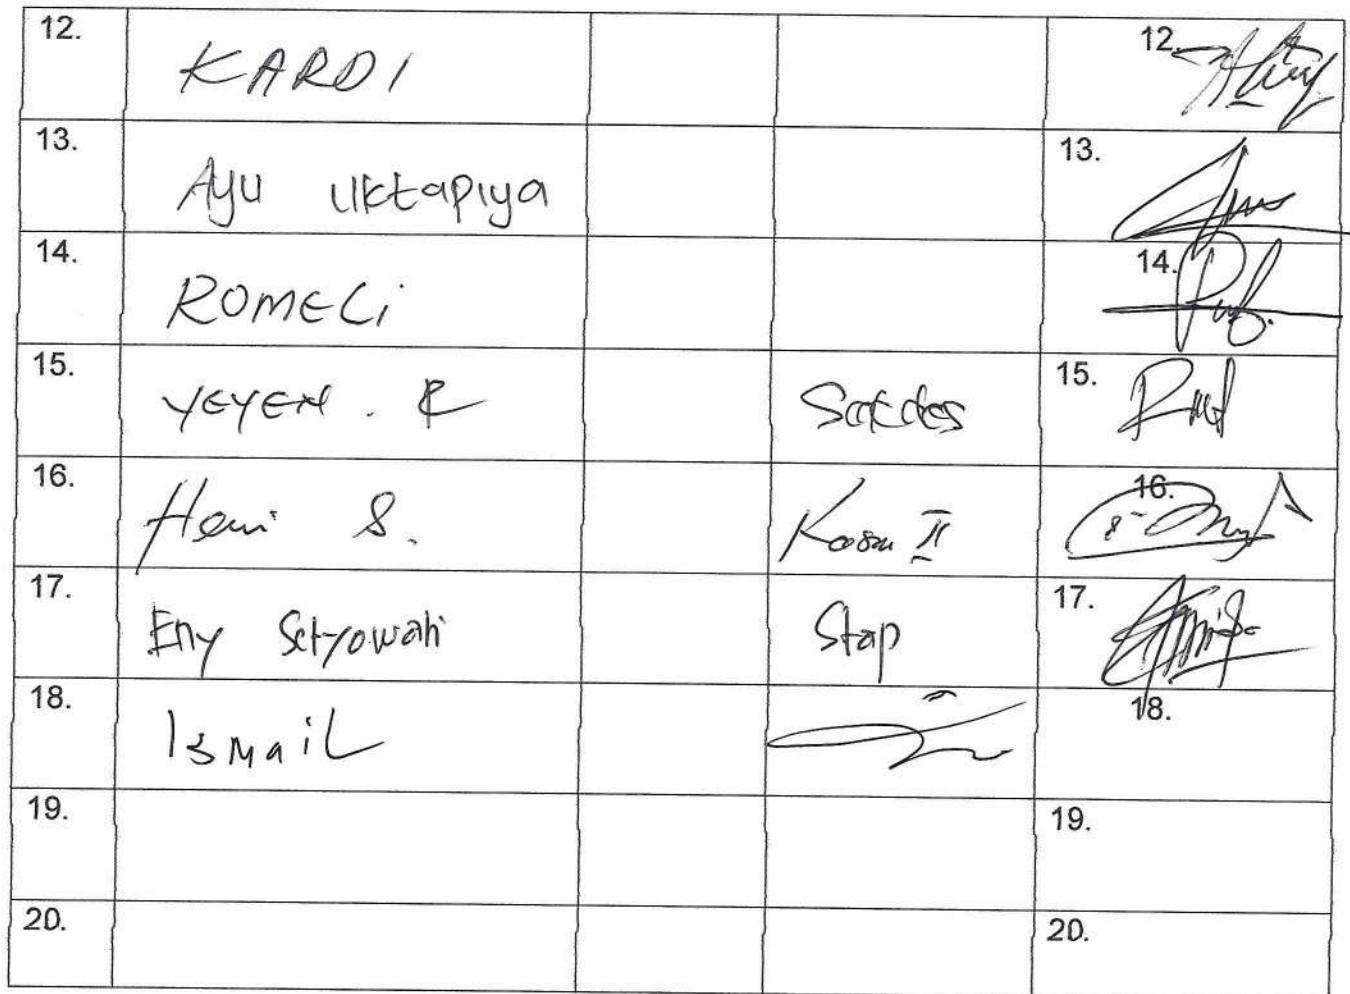 12. KARDI 12.
13. Ayu Uktapiya 13.
14. ROMELi 14.
15. YEYEN . R Sekdes 15.
16. Heni S. 16.
17. Eny Setyowati Stap 17.
18. Ismail 18.
19. 19.
20. 20.